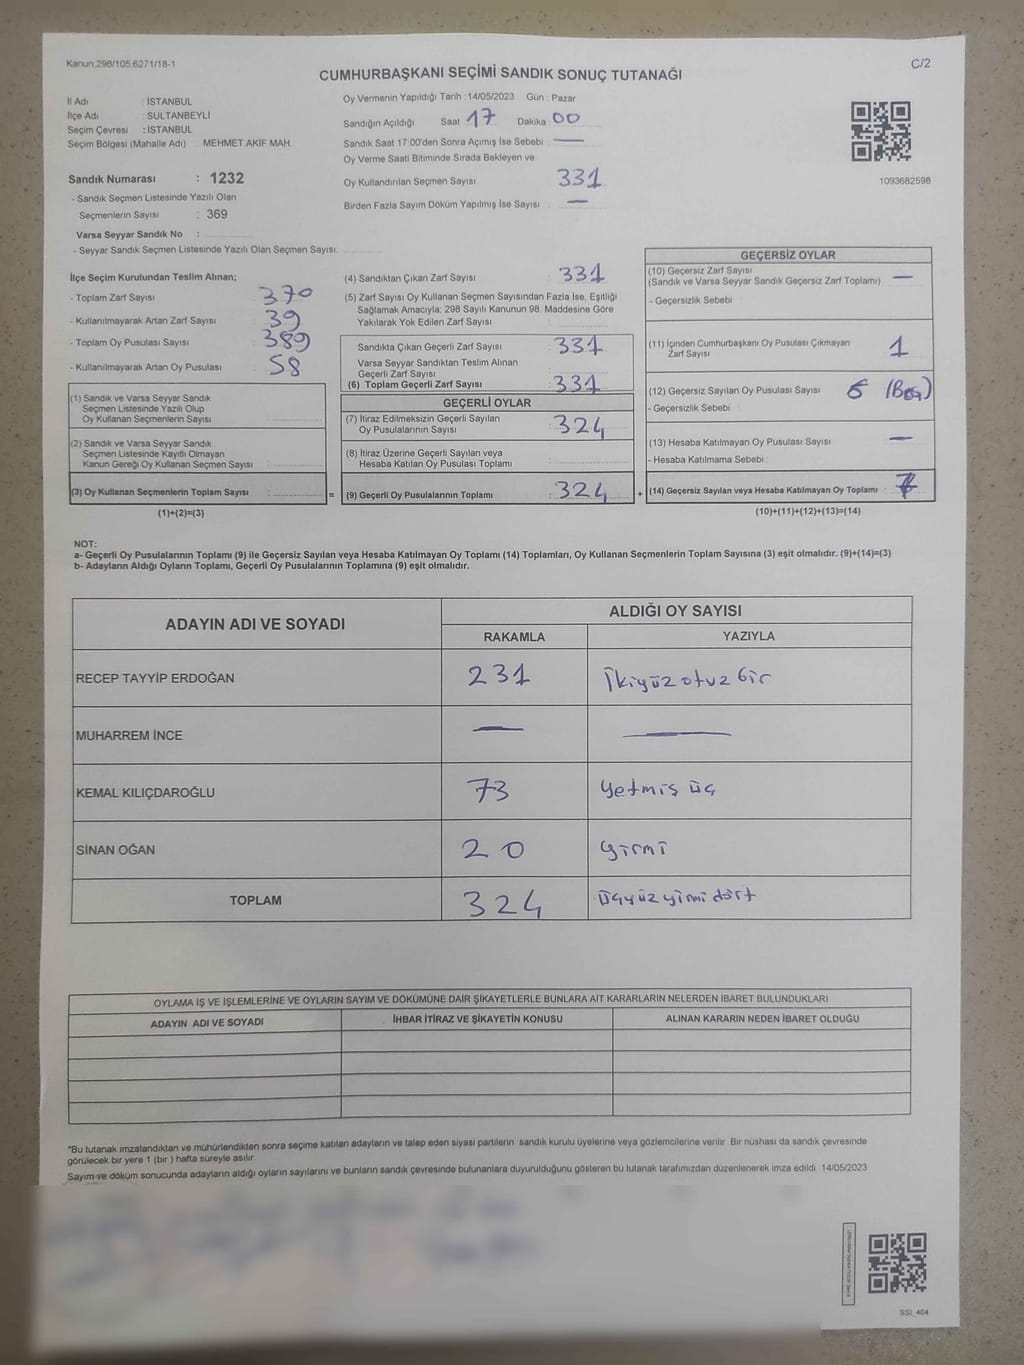 Kanun.298/105.6271/18-1
C/2
CUMHURBAŞKANI SEÇİMİ SANDIK SONUÇ TUTANAĞI
İl Adı : İSTANBUL
İlçe Adı : SULTANBEYLİ
Seçim Çevresi : İSTANBUL
Seçim Bölgesi (Mahalle Adı) : MEHMET AKİF MAH.
Oy Vermenin Yapıldığı Tarih : 14/05/2023 Gün : Pazar
Sandığın Açıldığı Saat 17 Dakika 00
Sandık Saat 17:00'den Sonra Açımış İse Sebebi : —
Oy Verme Saati Bitiminde Sırada Bekleyen ve
Oy Kullandırılan Seçmen Sayısı 331
Birden Fazla Sayım Döküm Yapılmış İse Sayısı : —
1093682598
Sandık Numarası : 1232
- Sandık Seçmen Listesinde Yazılı Olan
Seçmenlerin Sayısı : 369
Varsa Seyyar Sandık No :
- Seyyar Sandık Seçmen Listesinde Yazılı Olan Seçmen Sayısı:
İlçe Seçim Kurulundan Teslim Alınan;
- Toplam Zarf Sayısı : 370
- Kullanılmayarak Artan Zarf Sayısı : 39
- Toplam Oy Pusulası Sayısı : 389
- Kullanılmayarak Artan Oy Pusulası : 58
(1) Sandık ve Varsa Seyyar Sandık
Seçmen Listesinde Yazılı Olup
Oy Kullanan Seçmenlerin Sayısı :
(2) Sandık ve Varsa Seyyar Sandık
Seçmen Listesinde Kayıtlı Olmayan
Kanun Gereği Oy Kullanan Seçmen Sayısı :
(3) Oy Kullanan Seçmenlerin Toplam Sayısı : =
(1)+(2)=(3)
(4) Sandıktan Çıkan Zarf Sayısı : 331
(5) Zarf Sayısı Oy Kullanan Seçmen Sayısından Fazla İse, Eşitliği
Sağlamak Amacıyla; 298 Sayılı Kanunun 98. Maddesine Göre
Yakılarak Yok Edilen Zarf Sayısı :
Sandıkta Çıkan Geçerli Zarf Sayısı : 331
Varsa Seyyar Sandıktan Teslim Alınan
Geçerli Zarf Sayısı :
(6) Toplam Geçerli Zarf Sayısı : 331
GEÇERLİ OYLAR
(7) İtiraz Edilmeksizin Geçerli Sayılan
Oy Pusulalarının Sayısı : 324
(8) İtiraz Üzerine Geçerli Sayılan veya
Hesaba Katılan Oy Pusulası Toplamı :
(9) Geçerli Oy Pusulalarının Toplamı : 324 +
GEÇERSİZ OYLAR
(10) Geçersiz Zarf Sayısı
(Sandık ve Varsa Seyyar Sandık Geçersiz Zarf Toplamı) : —
- Geçersizlik Sebebi :
(11) İçinden Cumhurbaşkanı Oy Pusulası Çıkmayan
Zarf Sayısı : 1
(12) Geçersiz Sayılan Oy Pusulası Sayısı :
- Geçersizlik Sebebi :
(13) Hesaba Katılmayan Oy Pusulası Sayısı : —
- Hesaba Katılmama Sebebi :
(14) Geçersiz Sayılan veya Hesaba Katılmayan Oy Toplamı : 7
(10)+(11)+(12)+(13)=(14)
NOT:
a- Geçerli Oy Pusulalarının Toplamı (9) ile Geçersiz Sayılan veya Hesaba Katılmayan Oy Toplamı (14) Toplamları, Oy Kullanan Seçmenlerin Toplam Sayısına (3) eşit olmalıdır. (9)+(14)=(3)
b- Adayların Aldığı Oyların Toplamı, Geçerli Oy Pusulalarının Toplamına (9) eşit olmalıdır.
ADAYIN ADI VE SOYADI
ALDIĞI OY SAYISI
RAKAMLA YAZIYLA
RECEP TAYYİP ERDOĞAN 231 İkiyüz otuz bir
MUHARREM İNCE — —
KEMAL KILIÇDAROĞLU 73 yetmiş üç
SİNAN OĞAN 20 yirmi
TOPLAM 324 üçyüz yirmi dört
OYLAMA İŞ VE İŞLEMLERİNE VE OYLARIN SAYIM VE DÖKÜMÜNE DAİR ŞİKAYETLERLE BUNLARA AİT KARARLARIN NELERDEN İBARET BULUNDUKLARI
ADAYIN ADI VE SOYADI İHBAR İTİRAZ VE ŞİKAYETİN KONUSU ALINAN KARARIN NEDEN İBARET OLDUĞU
*Bu tutanak imzalandıktan ve mühürlendikten sonra seçime katılan adayların ve talep eden siyasi partilerin sandık kurulu üyelerine veya gözlemcilerine verilir. Bir nüshası da sandık çevresinde
görülecek bir yere 1 (bir ) hafta süreyle asılır.
Sayım ve döküm sonucunda adayların aldığı oyların sayılarını ve bunların sandık çevresinde bulunanlara duyurulduğunu gösteren bu tutanak tarafımızdan düzenlenerek imza edildi. 14/05/2023
SSI_404